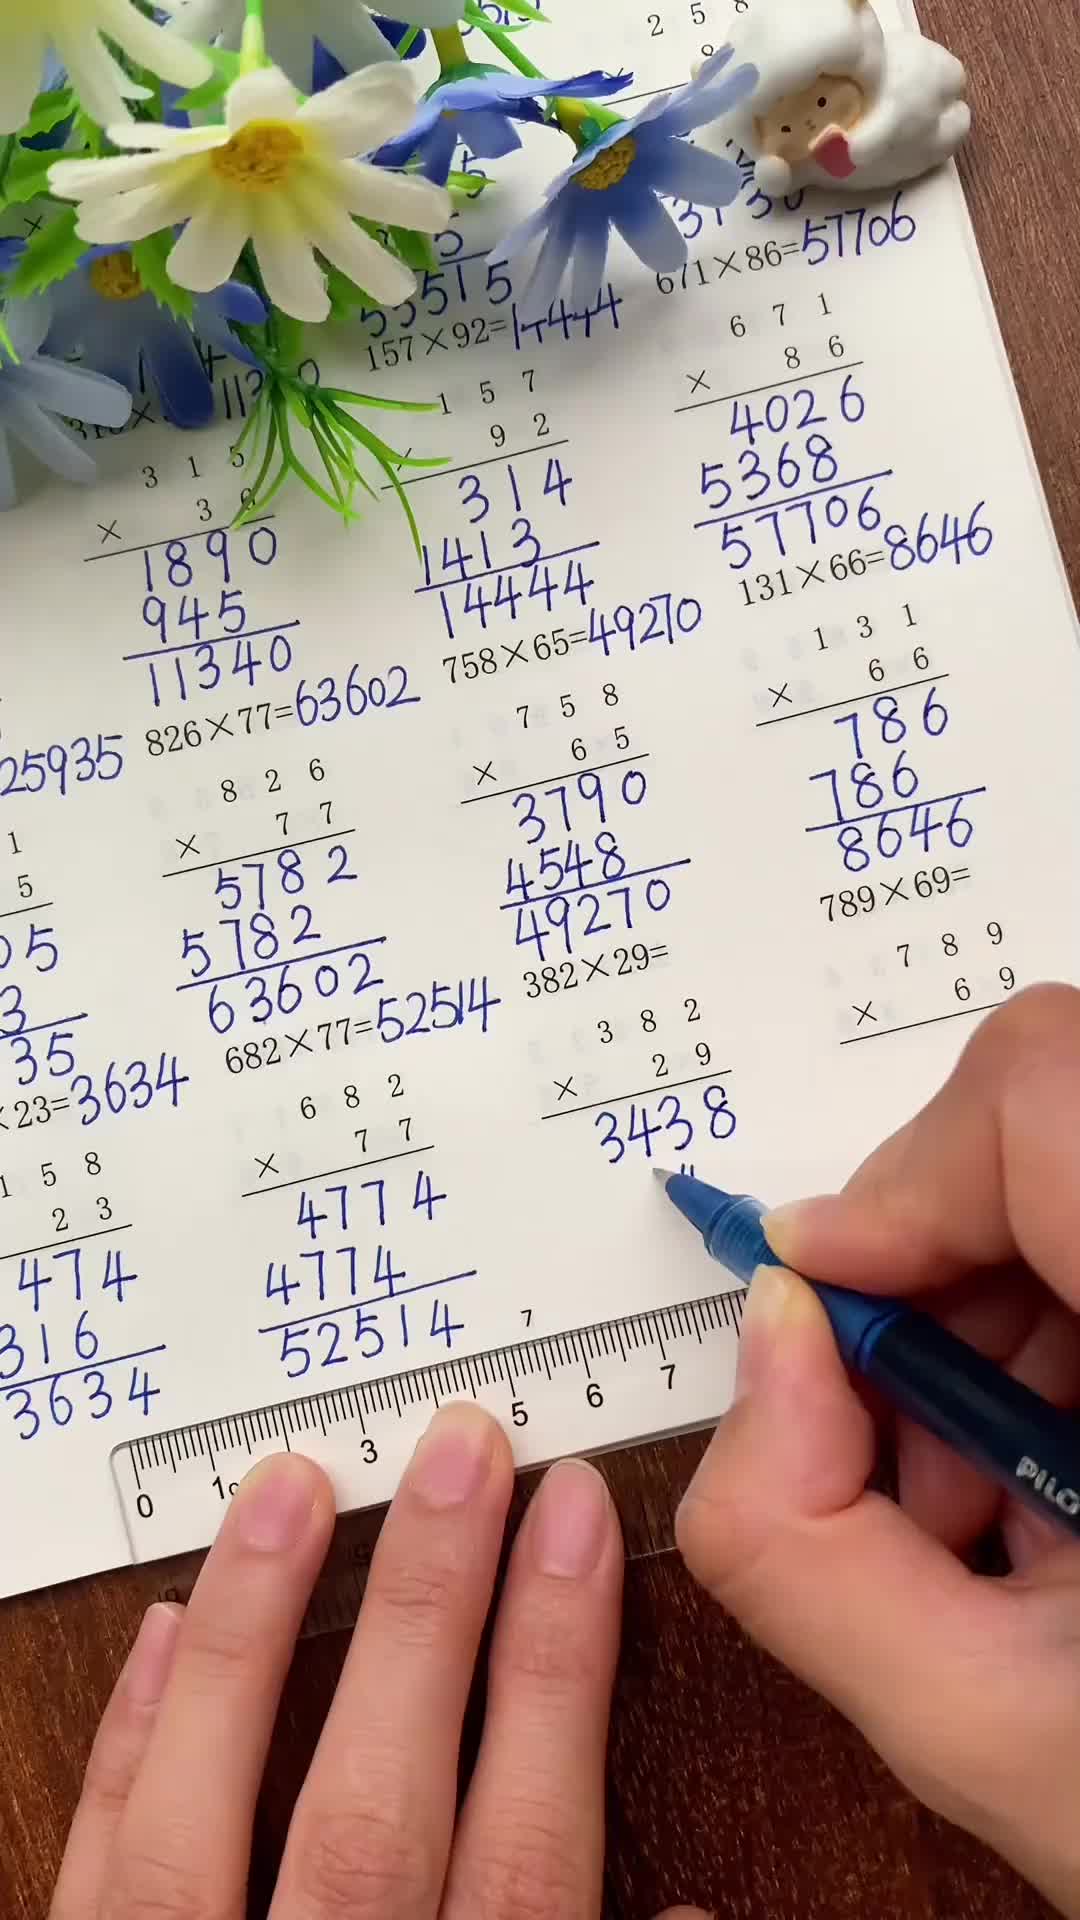 2 5 8
3 1 5
3
1890
945
11340
826×77=63602
8 2 6
× 7 7
5782
5782
63602
682×77=52514
6 8 2
× 7 7
4774
4774
52514
25935
1
5
05
3
35
×23=3634
1 5 8
2 3
474
316
3634
5515
157×92=
1 5 7
× 9 2
314
1413
14444
758×65=49270
7 5 8
× 6 5
3790
4548
49270
382×29=
3 8 2
× 2 9
3438
671×86=57706
6 7 1
× 8 6
4026
5368
57706
131×66=8646
1 3 1
× 6 6
786
786
8646
789×69=
7 8 9
× 6 9
0 1 3 5 6 7
7
PILO